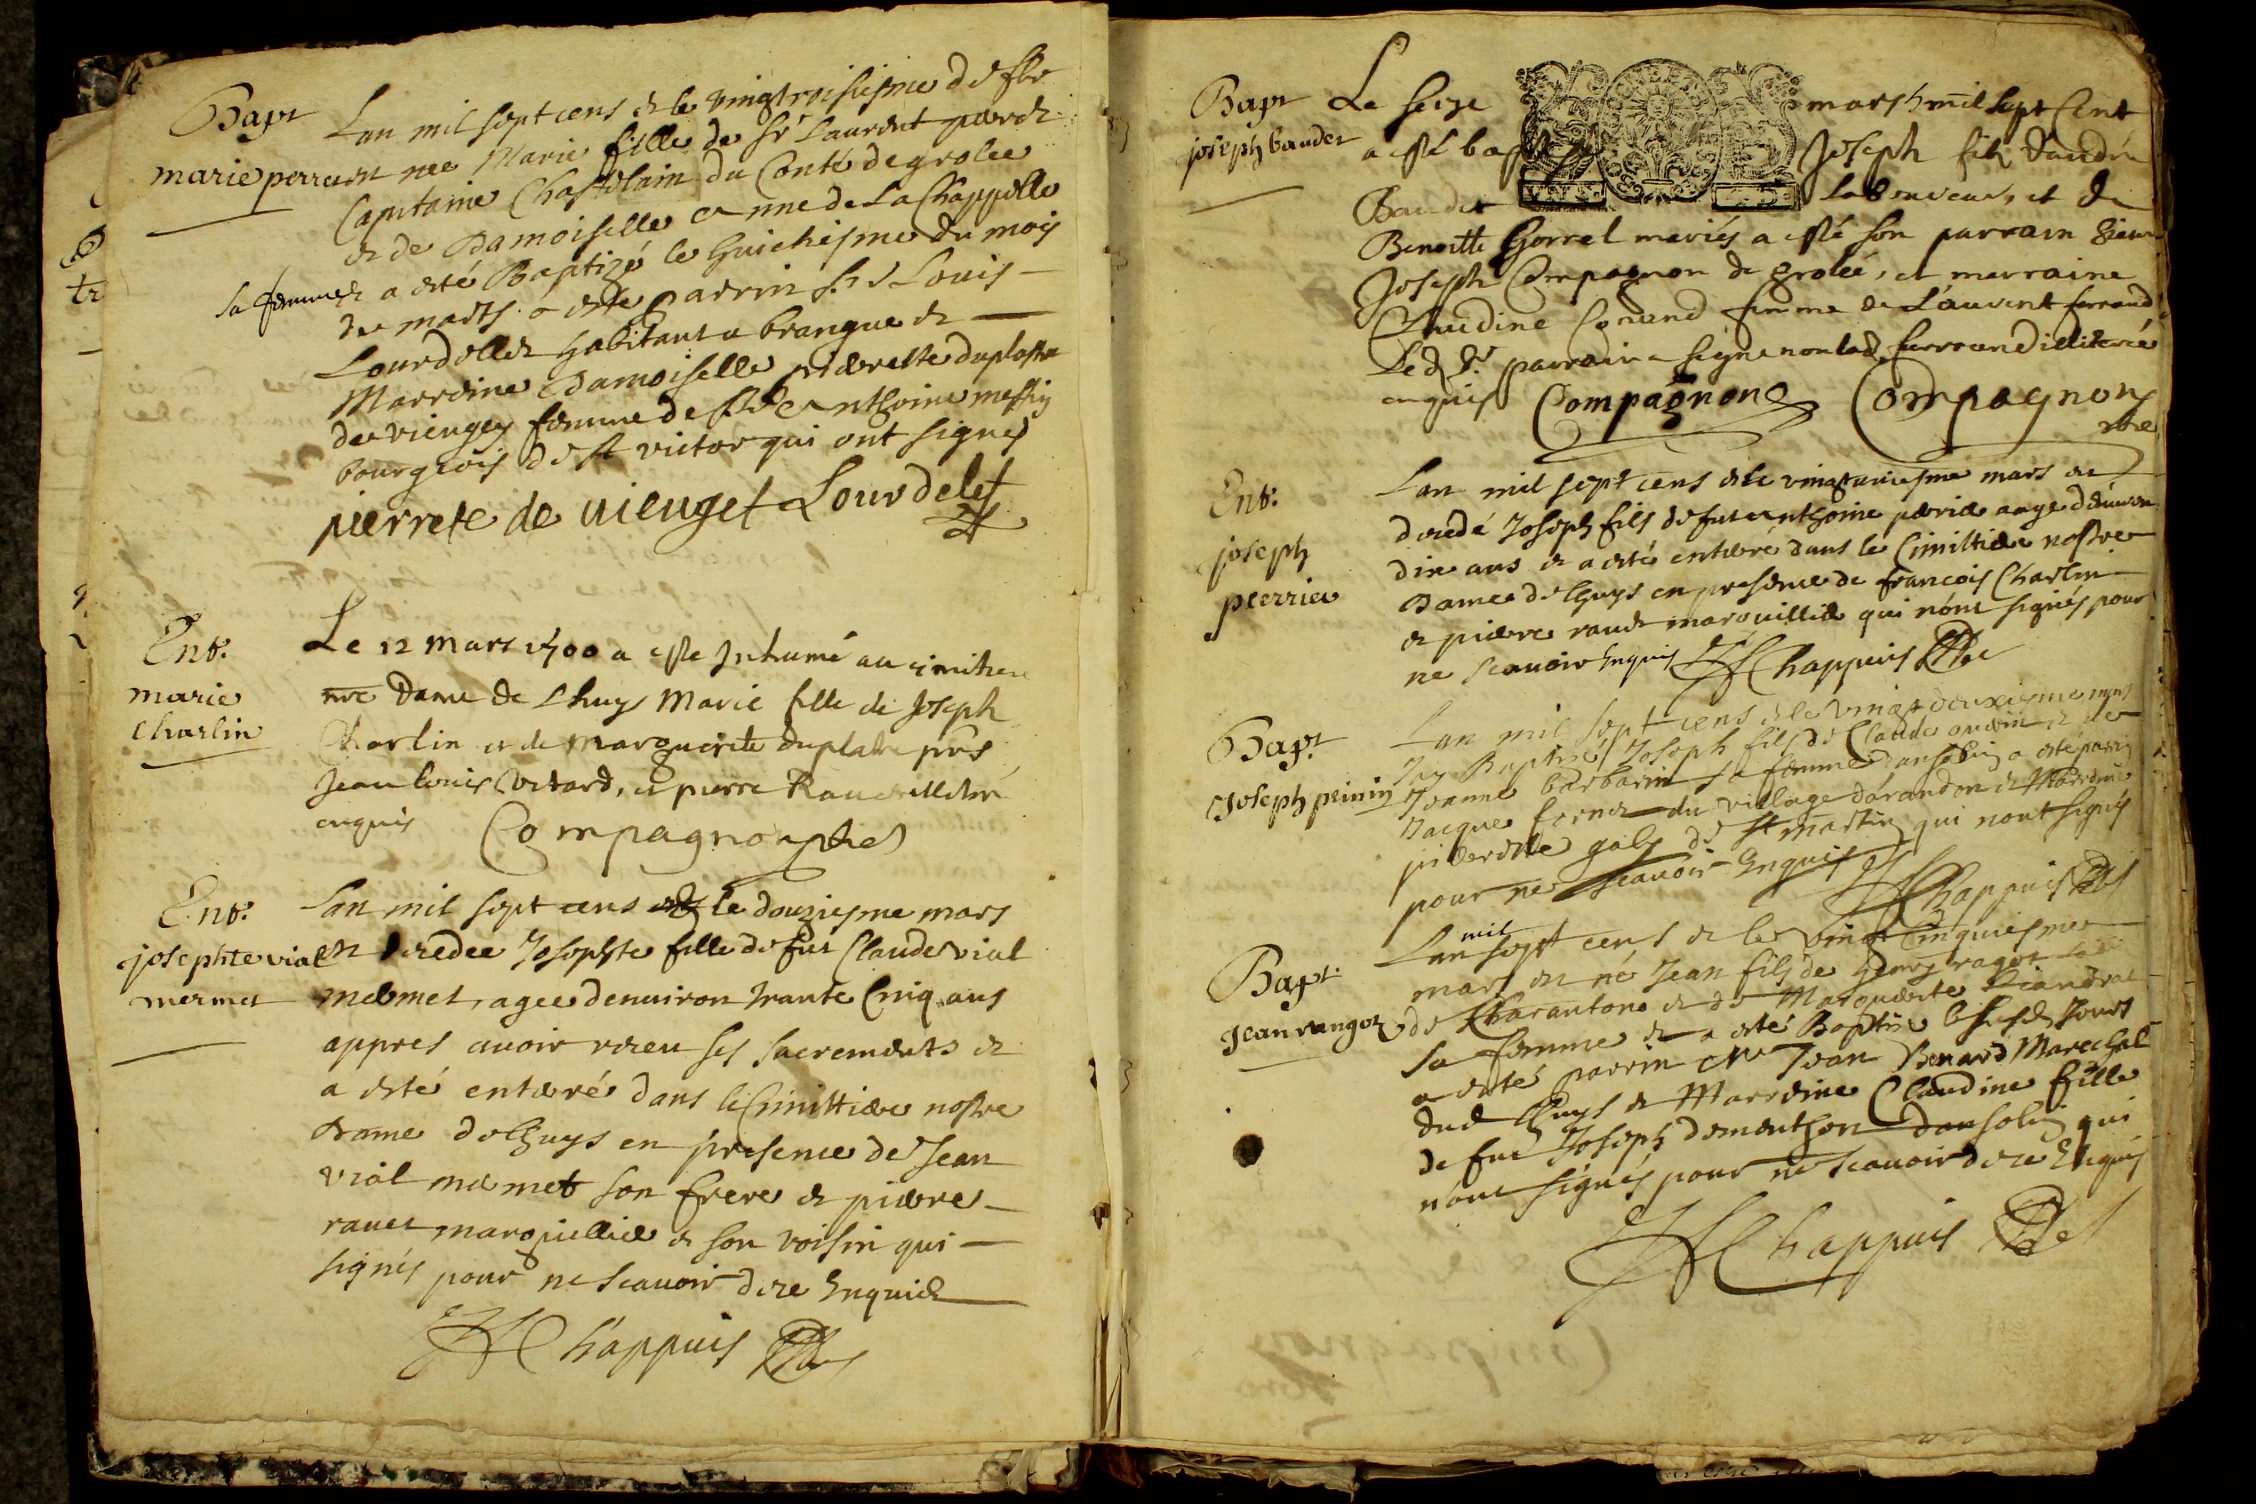 Bapt
marie perret
Lan mil sept cens & le vingtroisiesme de fbr
est nee Marie fille de Sr Laurent perret
Capitaine Chastelain du Conté de grolee
& de Damoiselle anne de La Chappelle
sa femme & a esté Baptizé le huictiesme du mois
de mars a esté parrin Louis
Lourdellet habitant a brangue &
Marreine Damoiselle pierrette duplastre
de vienges femme de anthoine
bourgeois de st victor qui ont signés
pierrete de vienget Lourdelet
Ent.
marie
charlin
Le 12 mars 1700 a este Inhumé au cimitiere
nre Dame de Lhuys Marie fille de Joseph
Charlin et de Marguerite duplatre pns
Jean louis Vetard, et pierre Ravet
enquis Compagnon
Ent.
josephte vial
mermet
Lan mil sept cens & le douziesme mars
est decedee Josephte fille de feu Claude vial
mermet, agee denuiron trante Cinq ans
appres auoir receu ses sacrements &
a esté enterré dans le Cimittiere nostre
Dame de Lhuys en presence de Jean
vial mermet son frere & pierre
ravet marguillier & son voisin qui
signés pour ne scauoir de ce Enquis
Chappuis
Bapt
joseph baudet
Le seize mars mil sept Cent
a esté baptisé Joseph fils dandré
Baudet laboureur, et de
Benoitte Gorrel mariés a esté son parrain Sieur
Joseph Compagnon de grolée, et marraine
Claudine Conand femme de Laurent ferrand
Led Sr. parrain a signe non lad ferrand illiterée
enquis Compagnon Compagnon
Ent.
joseph
perrier
Lan mil sept cens & le vingtuniesme mars est
decedé Joseph fils de feu anthoine perrier aagé denuiron
dix ans & a esté enterré dans le Cimittiere nostre
Dame de Lhuys en presence de francois Charlin
& pierre ravet marguillier qui nont signés pour
ne scauoir Enquis Chappuis
Bapt
Joseph
Lan mil sept cens & le vingt deuxiesme mars
Jay Baptisé Joseph fils de Claude & de
Jeanne barbarin sa femme dansolin a esté parrin
Jacque du village darandon & Marreine
pierrette galy de st martin qui nont signés
pour ne scauoir Enquis Chappuis
Bapt.
Jean ragot
Lan mil sept cens & le vingt Cinquiesme
mars est né Jean fils de ragot
de Charantone & de Marguerite
sa femme & a esté Baptisé
a esté parrin Mre Jean Benard Marechal
dud Lhuys & Marreine Claudine fille
de feu Joseph dementhon dansolin qui
nont signés pour ne scauoir de ce Enquis
Chappuis